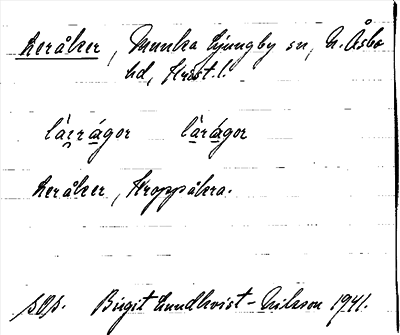 Leråker, Munka Ljungby sn, N. Åsbo
hd, Krist. l.
Leråker, Kroppåkra.
sOp. Birgit Lundkvist-Nilsson 1941.